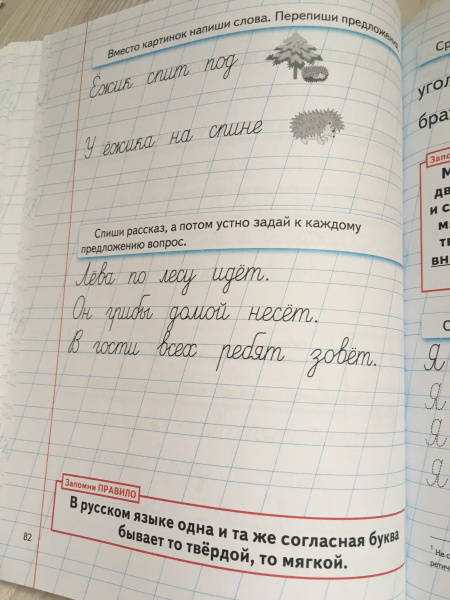 Вместо картинок напиши слова. Перепиши предложения
Ёжик спит под
У ёжика на спине
Спиши рассказ, а потом устно задай к каждому
предложению вопрос.
Лёва по лесу идёт.
Он грибы домой несёт.
В гости всех ребят зовёт.
Запомни ПРАВИЛО
В русском языке одна и та же согласная буква
бывает то твёрдой, то мягкой.
82
Ср
уго
бра
Запо
М
дв
и с
м
тв
вн
С
Я
Я
Я
Я